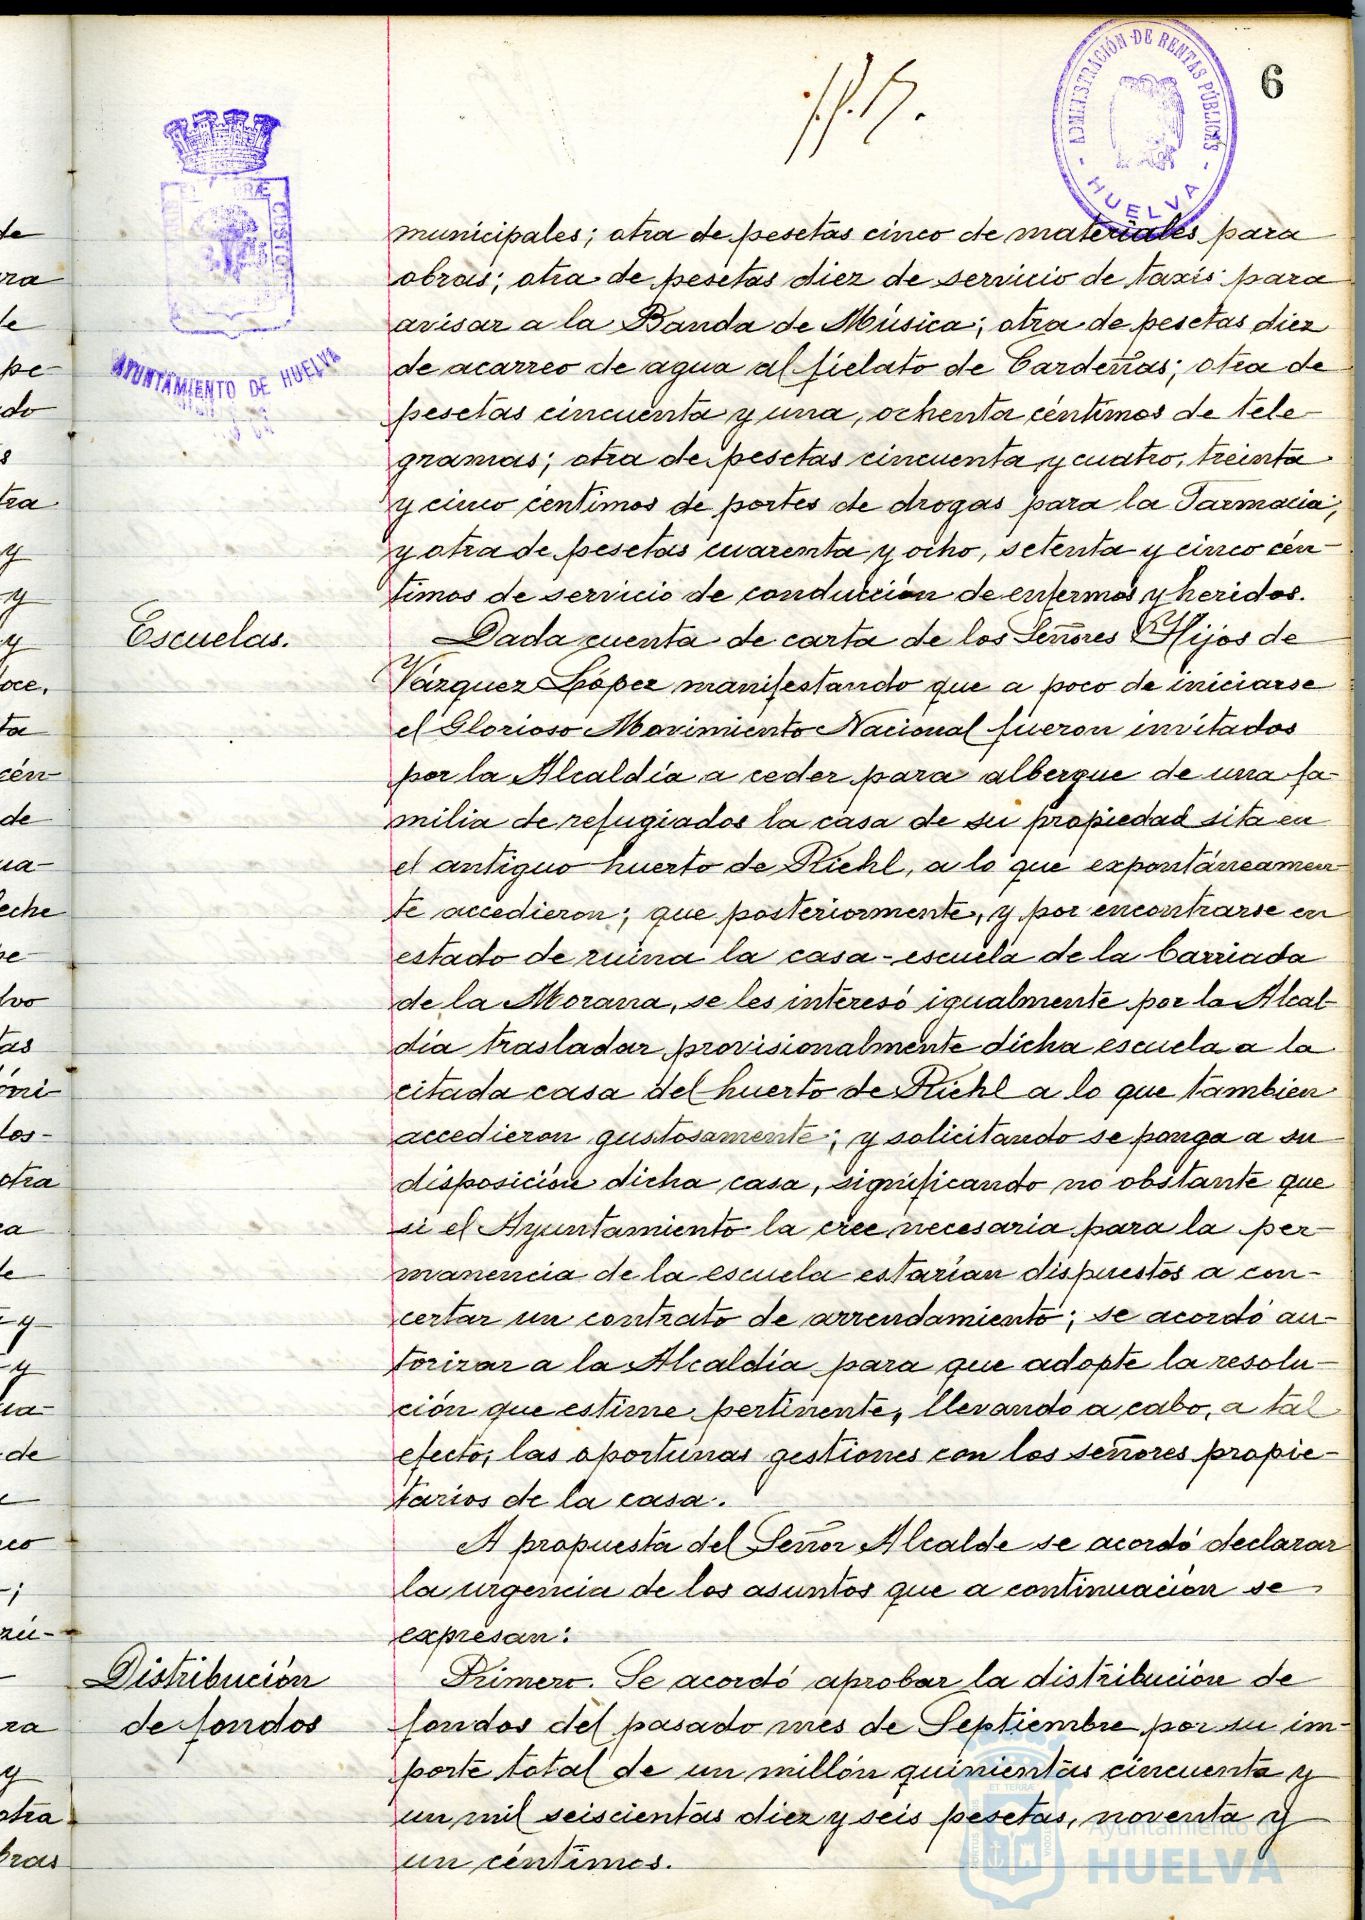 6
ADMINISTRACIÓN DE RENTAS PÚBLICAS
HUELVA
AYUNTAMIENTO DE HUELVA
municipales; otra de pesetas cinco de materiales para
obras; otra de pesetas diez de servicio de taxis para
avisar a la Banda de Música; otra de pesetas diez
de acarreo de agua al fielato de Cardeñas; otra de
pesetas cincuenta y una, ochenta céntimos de tele-
gramas; otra de pesetas cincuenta y cuatro, treinta
y cinco céntimos de portes de drogas para la Farmacia;
y otra de pesetas cuarenta y ocho, setenta y cinco cén-
timos de servicio de conducción de enfermos y heridos.
Escuelas.
Dada cuenta de carta de los Señores Hijos de
Vázquez López manifestando que a poco de iniciarse
el Glorioso Movimiento Nacional fueron invitados
por la Alcaldía a ceder para albergue de una fa-
milia de refugiados la casa de su propiedad sita en
el antiguo huerto de Riehl, a lo que expontáneamen-
te accedieron; que posteriormente, y por encontrarse en
estado de ruina la casa-escuela de la barriada
de la Morana, se les interesó igualmente por la Alcal-
día trasladar provisionalmente dicha escuela a la
citada casa del huerto de Riehl a lo que tambien
accedieron gustosamente; y solicitando se ponga a su
disposición dicha casa, significando no obstante que
si el Ayuntamiento la cree necesaria para la per-
manencia de la escuela estarían dispuestos a con-
certar un contrato de arrendamiento; se acordó au-
torizar a la Alcaldía para que adopte la resolu-
ción que estime pertinente, llevando a cabo, a tal
efecto, las oportunas gestiones con los señores propie-
tarios de la casa.
A propuesta del Señor Alcalde se acordó declarar
la urgencia de los asuntos que a continuación se
expresan:
Distribución
de fondos
Primero. Se acordó aprobar la distribución de
fondos del pasado mes de Septiembre por su im-
porte total de un millón quinientas cincuenta y
un mil seiscientas diez y seis pesetas, noventa y
un céntimos.
Ayuntamiento de
HUELVA